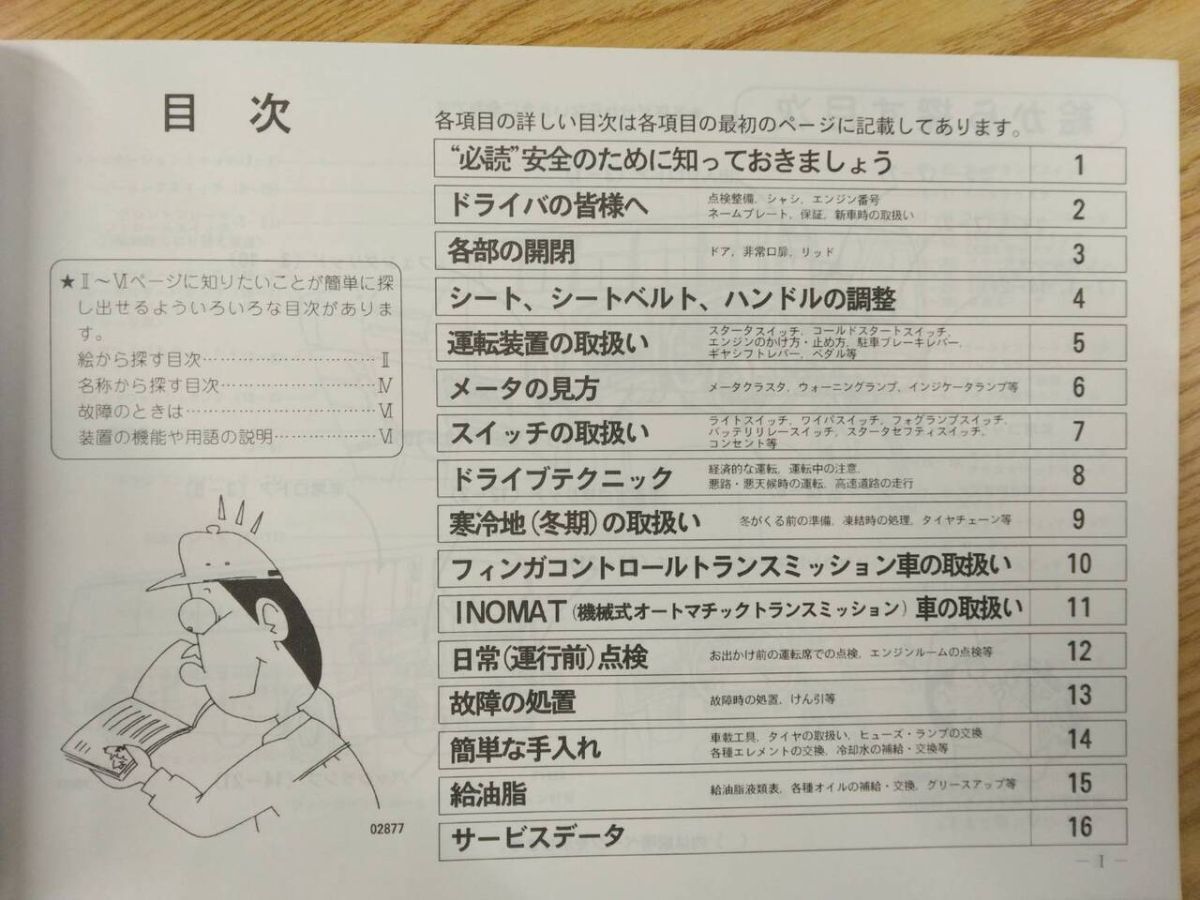 目 次
★Ⅱ～Ⅵページに知りたいことが簡単に探
し出せるよういろいろな目次がありま
す。
絵から探す目次……………………Ⅱ
名称から探す目次…………………Ⅳ
故障のときは………………………Ⅵ
装置の機能や用語の説明…………Ⅵ
02877
各項目の詳しい目次は各項目の最初のページに記載してあります。
“必読”安全のために知っておきましょう 1
ドライバの皆様へ 点検整備、シャシ、エンジン番号 2
ネームプレート、保証、新車時の取扱い
各部の開閉 ドア、非常口扉、リッド 3
シート、シートベルト、ハンドルの調整 4
運転装置の取扱い スタータスイッチ、コールドスタートスイッチ、 5
エンジンのかけ方・止め方、駐車ブレーキレバー、
ギヤシフトレバー、ペダル等
メータの見方 メータクラスタ、ウォーニングランプ、インジケータランプ等 6
スイッチの取扱い ライトスイッチ、ワイパスイッチ、フォグランプスイッチ、 7
バッテリリレースイッチ、スタータセフティスイッチ、
コンセント等
ドライブテクニック 経済的な運転、運転中の注意、 8
悪路・悪天候時の運転、高速道路の走行
寒冷地(冬期)の取扱い 冬がくる前の準備、凍結時の処理、タイヤチェーン等 9
フィンガコントロールトランスミッション車の取扱い 10
INOMAT(機械式オートマチックトランスミッション)車の取扱い 11
日常(運行前)点検 お出かけ前の運転席での点検、エンジンルームの点検等 12
故障の処置 故障時の処置、けん引等 13
簡単な手入れ 車載工具、タイヤの取扱い、ヒューズ・ランプの交換 14
各種エレメントの交換、冷却水の補給・交換等
給油脂 給油脂液類表、各種オイルの補給・交換、グリースアップ等 15
サービスデータ 16
— I —